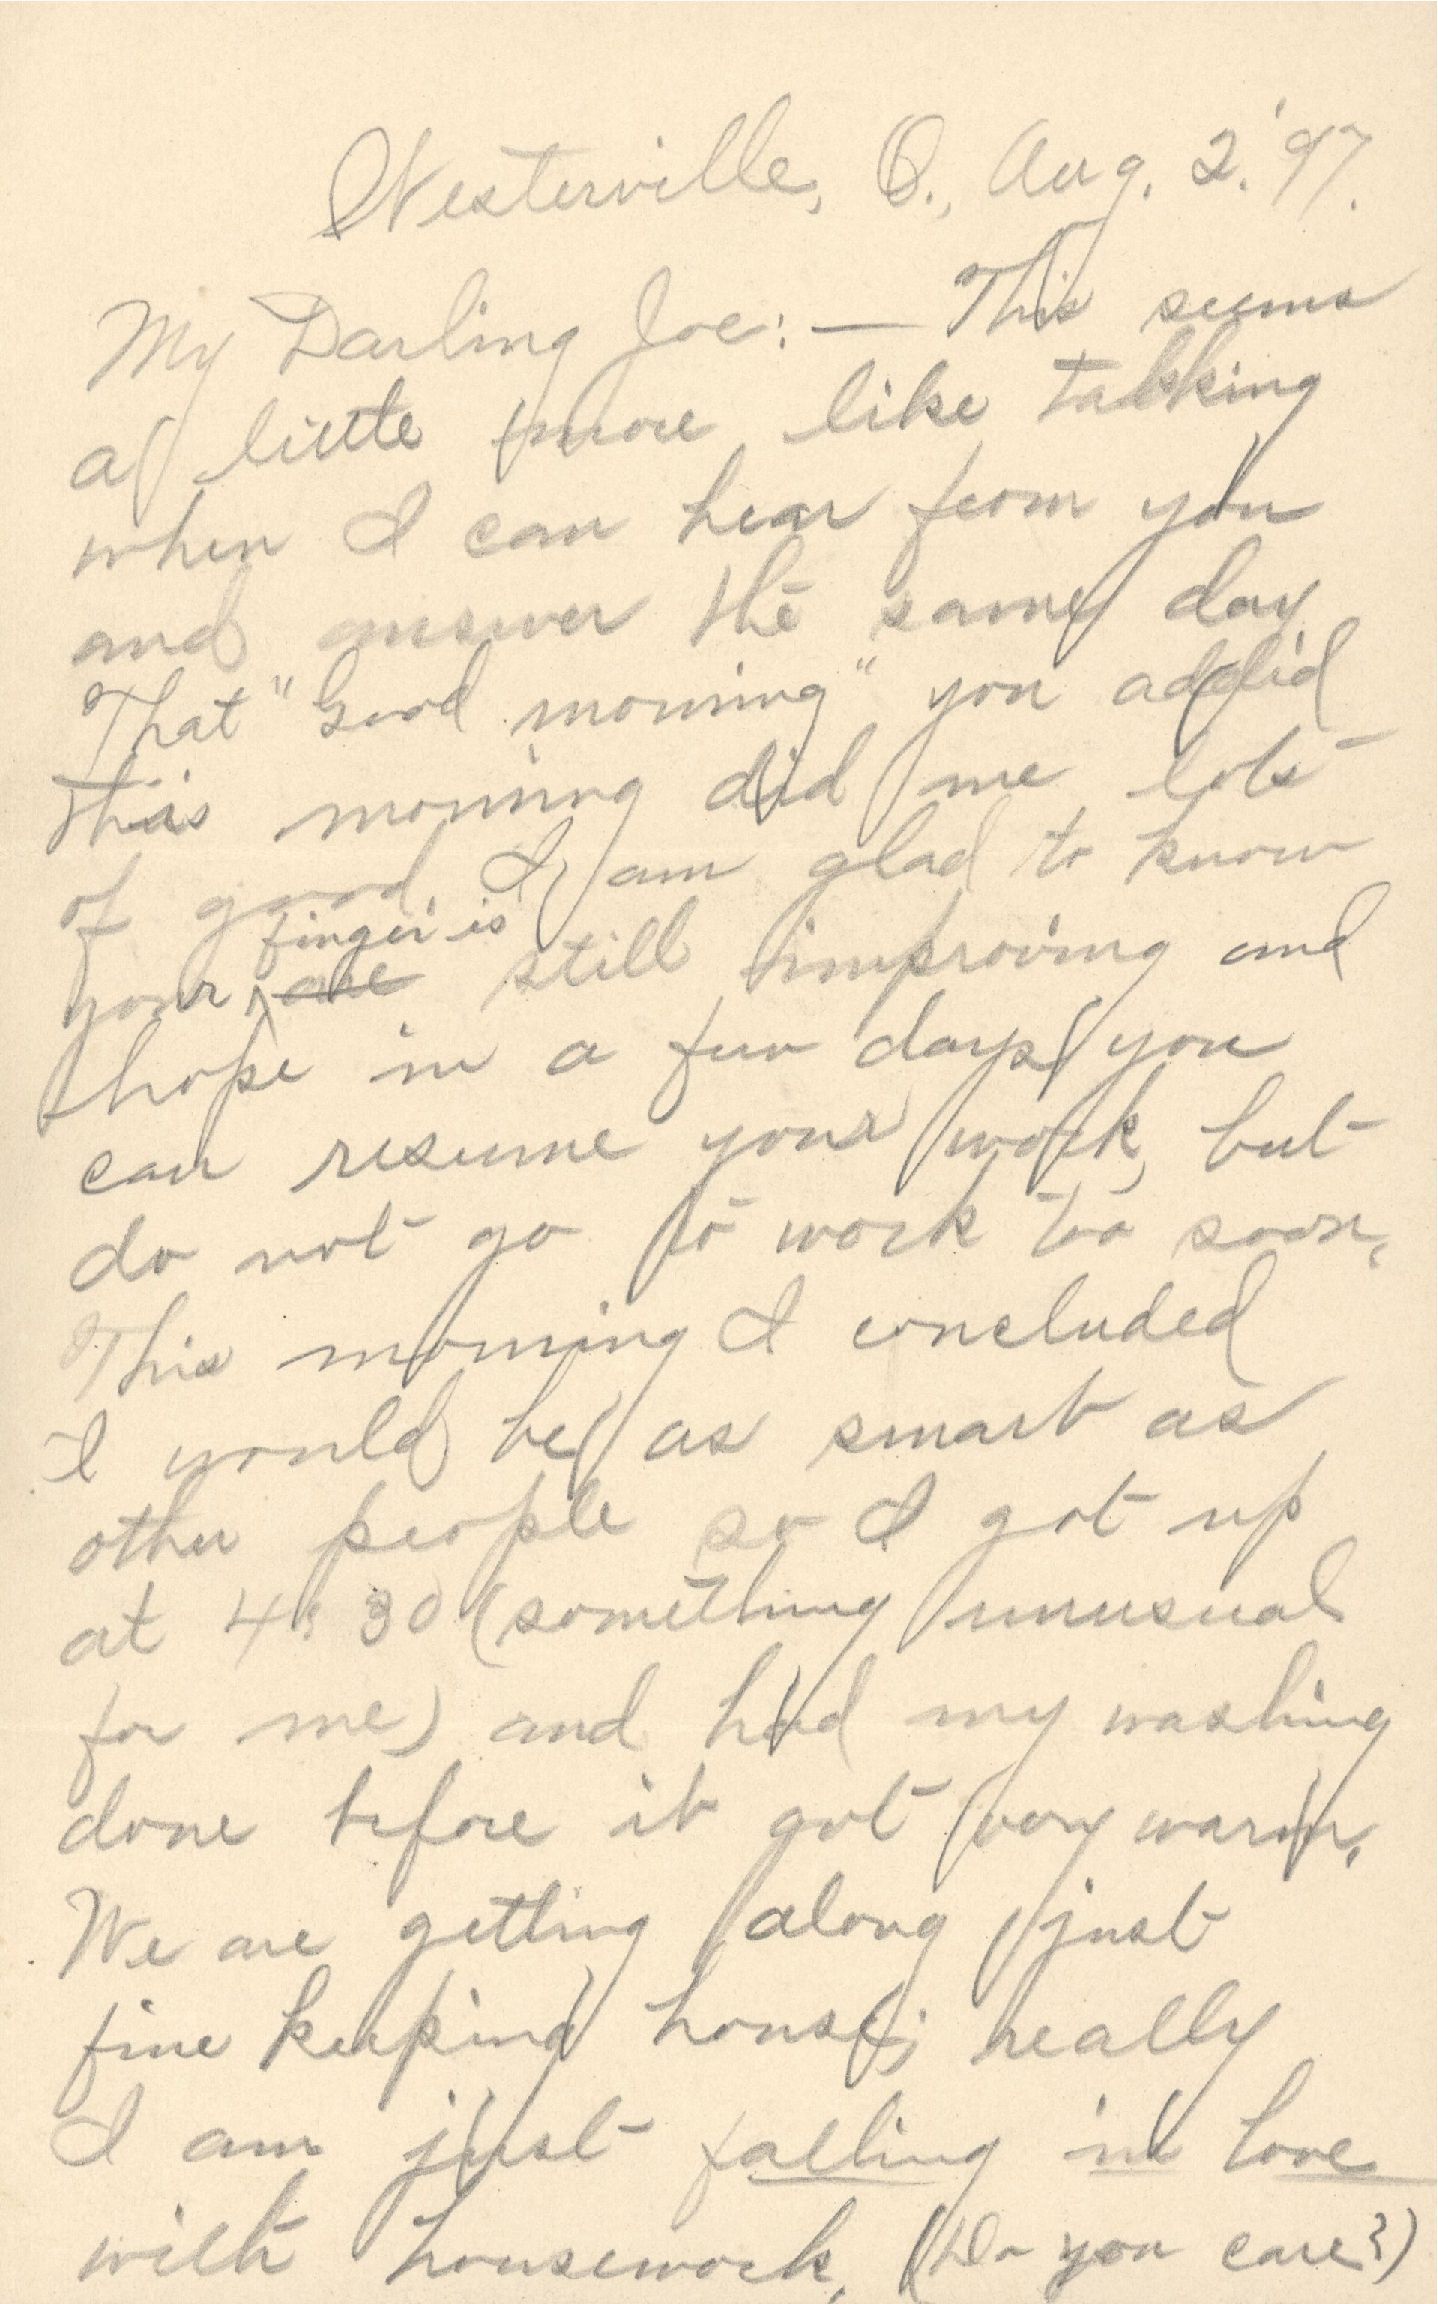 Westerville, O., Aug. 2. '97.
My Darling Joe: — This seems
a little more like talking
when I can hear from you
and answer the same day
That "Good morning" you added
this morning did me lots
of good. I am glad to know
finger is
your are still improving and
hope in a few days you
can resume your work, but
do not go to work too soon.
This morning I concluded
I would be as smart as
other people so I got up
at 4:30 (something unusual
for me) and had my washing
done before it got very warm.
We are getting along just
fine keeping house; really
I am just falling in love
with housework. (Do you care?)